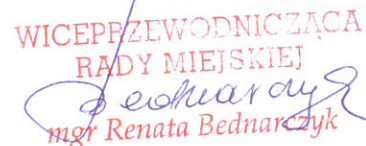 WICEPRZEWODNICZĄCA
RADY MIEJSKIEJ
Bednarczyk
mgr Renata Bednarczyk